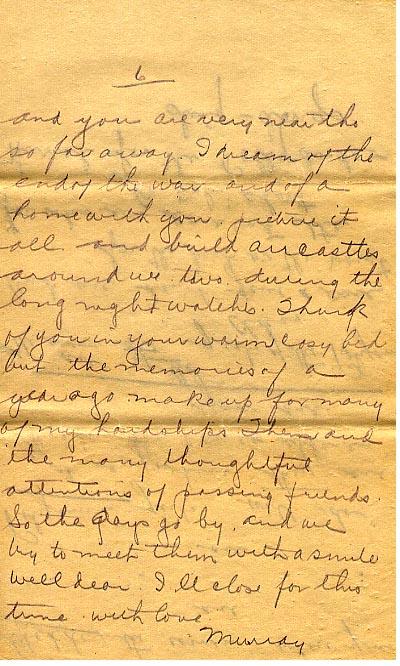 6
and you are very near tho
so far away. I dream of the
end of the war. and of a
home with you. picture it
all and build aircastles
around we two. during the
long night watches. I think
of you in your warm cosy bed
but the memories of a
year ago. make up for many
of my hardships. Them and
the many thoughtful
attentions of passing friends.
So the days go by. and we
try to meet them with a smile
well dear. I'll close for this
time. with love
Murray